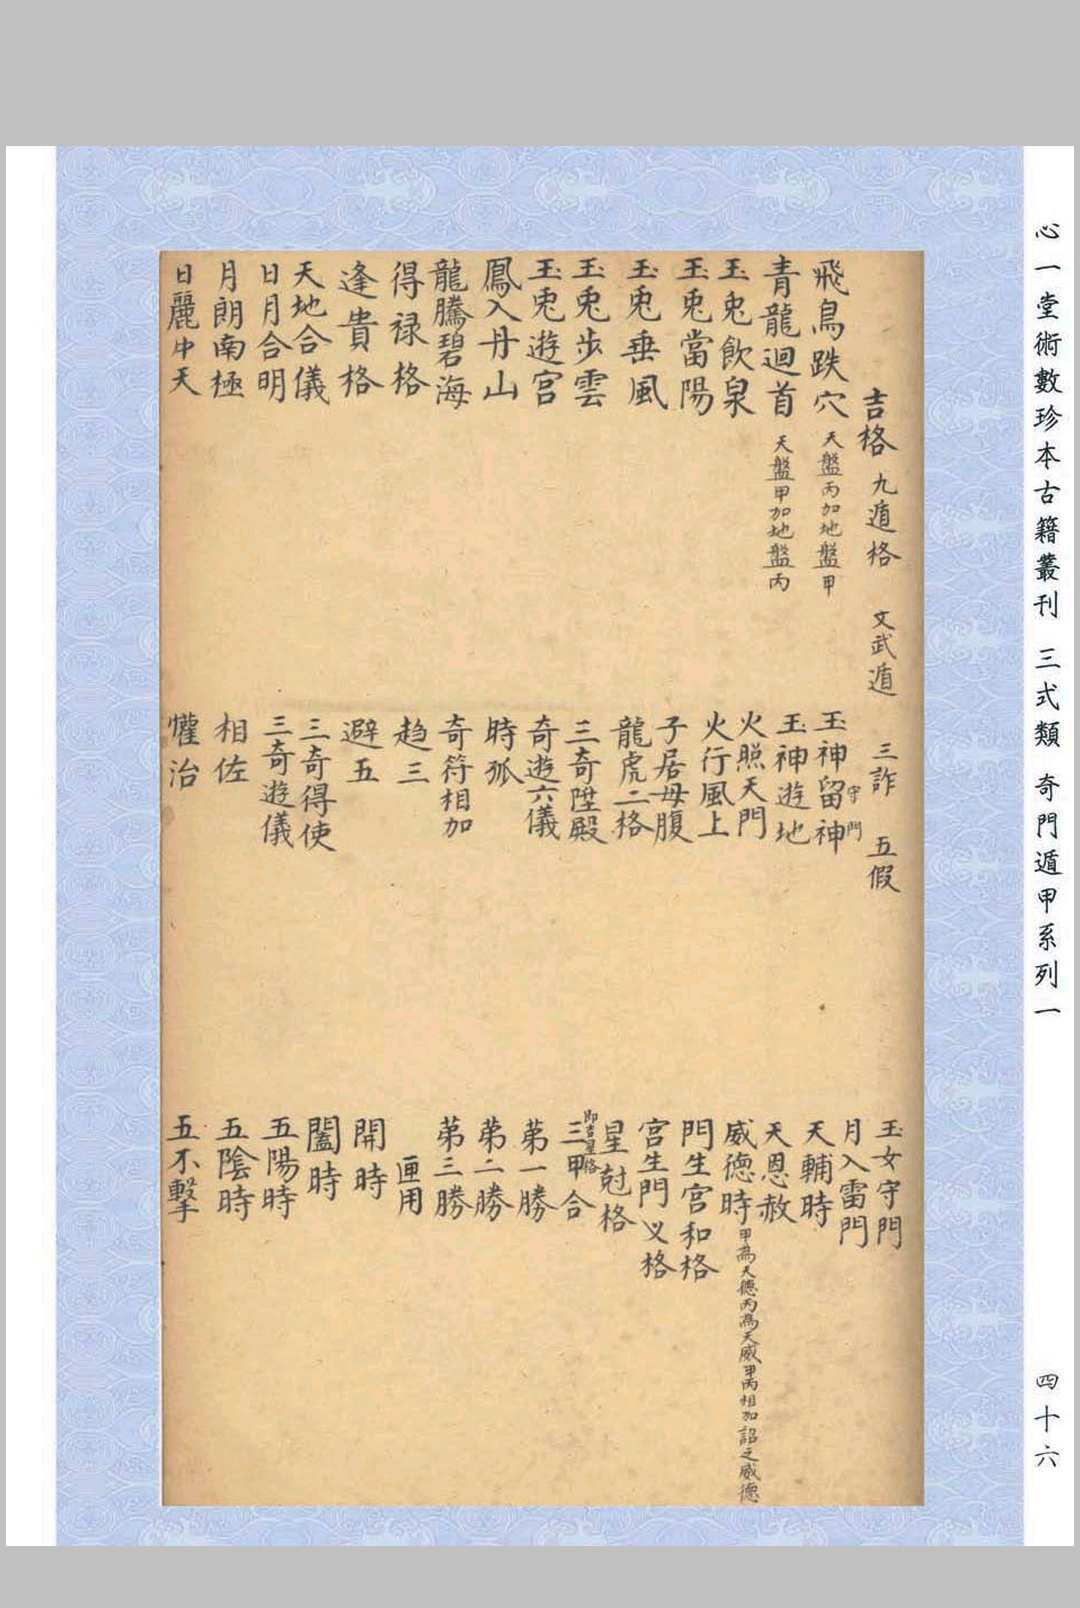 心一堂術數珍本古籍叢刊 三式類 奇門遁甲系列一
四十六
吉格 九遁格 文武遁 三詐 五假
飛鳥跌穴 天盤丙加地盤甲
青龍迴首 天盤甲加地盤丙
玉兎飲泉
玉兎當陽
玉兎垂風
玉兎步雲
玉兎遊宫
鳳入丹山
龍騰碧海
得禄格
逢貴格
天地合儀
日月合明
月朗南極
日麗中天
玉神留神 守門
玉神遊地
火照天門
火行風上
子居母腹
龍虎二格
三奇陞殿
奇遊六儀
時孤
奇符相加
趋三
避五
三奇得使
三奇遊儀
相佐
懽治
玉女守門
月入雷門
天輔時
天恩赦
威德時 甲為天德丙為天威甲丙相加謂之威德
門生宫和格
宫生門义格
星尅格
三甲合 即吉星格
第一勝
第二勝
第三勝
匣用
開時
闔時
五陽時
五陰時
五不擊